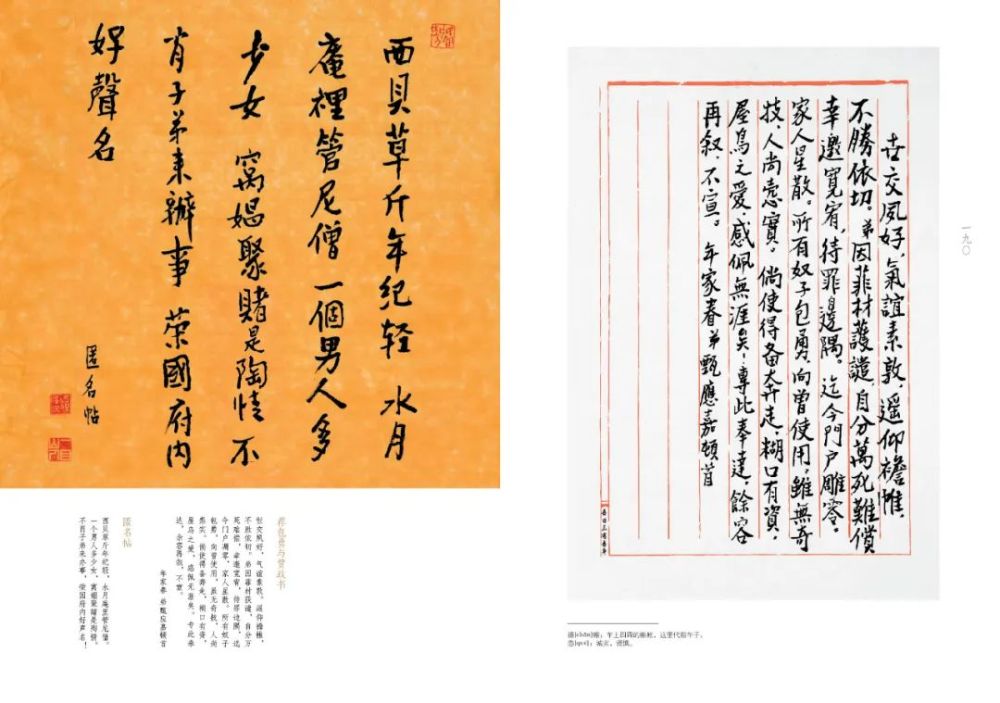 西貝草斤年纪轻 水月
庵裡管尼僧 一個男人多
少女 窩娼聚賭是陶情 不
肖子弟来辦事 荣國府内
好聲名
匿名帖
荐包勇与贾政书
世交夙好，气谊素敦。遥仰襜帷，
不胜依切。弟因菲材获谴，自分万
死难偿，幸邀宽宥，待罪边隅，迄
今门户凋零，家人星散。所有奴子
包勇，向曾使用，虽无奇技，人尚
悫实。倘使得备奔走，糊口有资，
屋乌之爱，感佩无涯矣。专此奉
达，余容再叙。不宣。
年家眷 弟甄应嘉顿首
匿名帖
西贝草斤年纪轻，水月庵里管尼僧。
一个男人多少女，窝娼聚赌是陶情。
不肖子弟来办事，荣国府内好声名！
世交夙好，氣誼素敦，遥仰襜帷，
不勝依切。弟因菲材獲譴，自分萬死難償
幸邀寬宥，待罪邊隅。迄今門户雕零。
家人星散。所有奴子包勇，向曾使用，雖無奇
技、人尚慤實。倘使得备奔走，糊口有資，
屋烏之愛，感佩無涯矣！專此奉達，餘容
再叙，不宣。 年家眷弟甄應嘉頓首
一九〇
襜[chān]帷：车上四周的帷帐。这里代指车子。
悫[què]：诚实，谨慎。